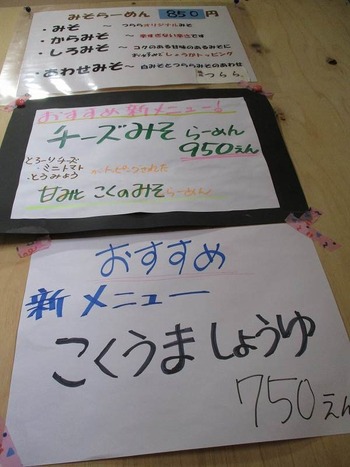 みそらーめん 850円
・みそ ～ つららオリジナルみそ
・からみそ ～ 辛すぎない辛さです
・しろみそ ～ コクのある甘味のあるみそに
おこのみでしょうがトッピング
・あわせみそ ～ 白みそとつららみそのあわせ
つらら
おすすめ新メニュー！
チーズみそらーめん
950えん
とろーりチーズ
・ミニトマト
・とうみょう
甘みとこくのみそらーめん
おすすめ
新メニュー
こくうましょうゆ
750えん